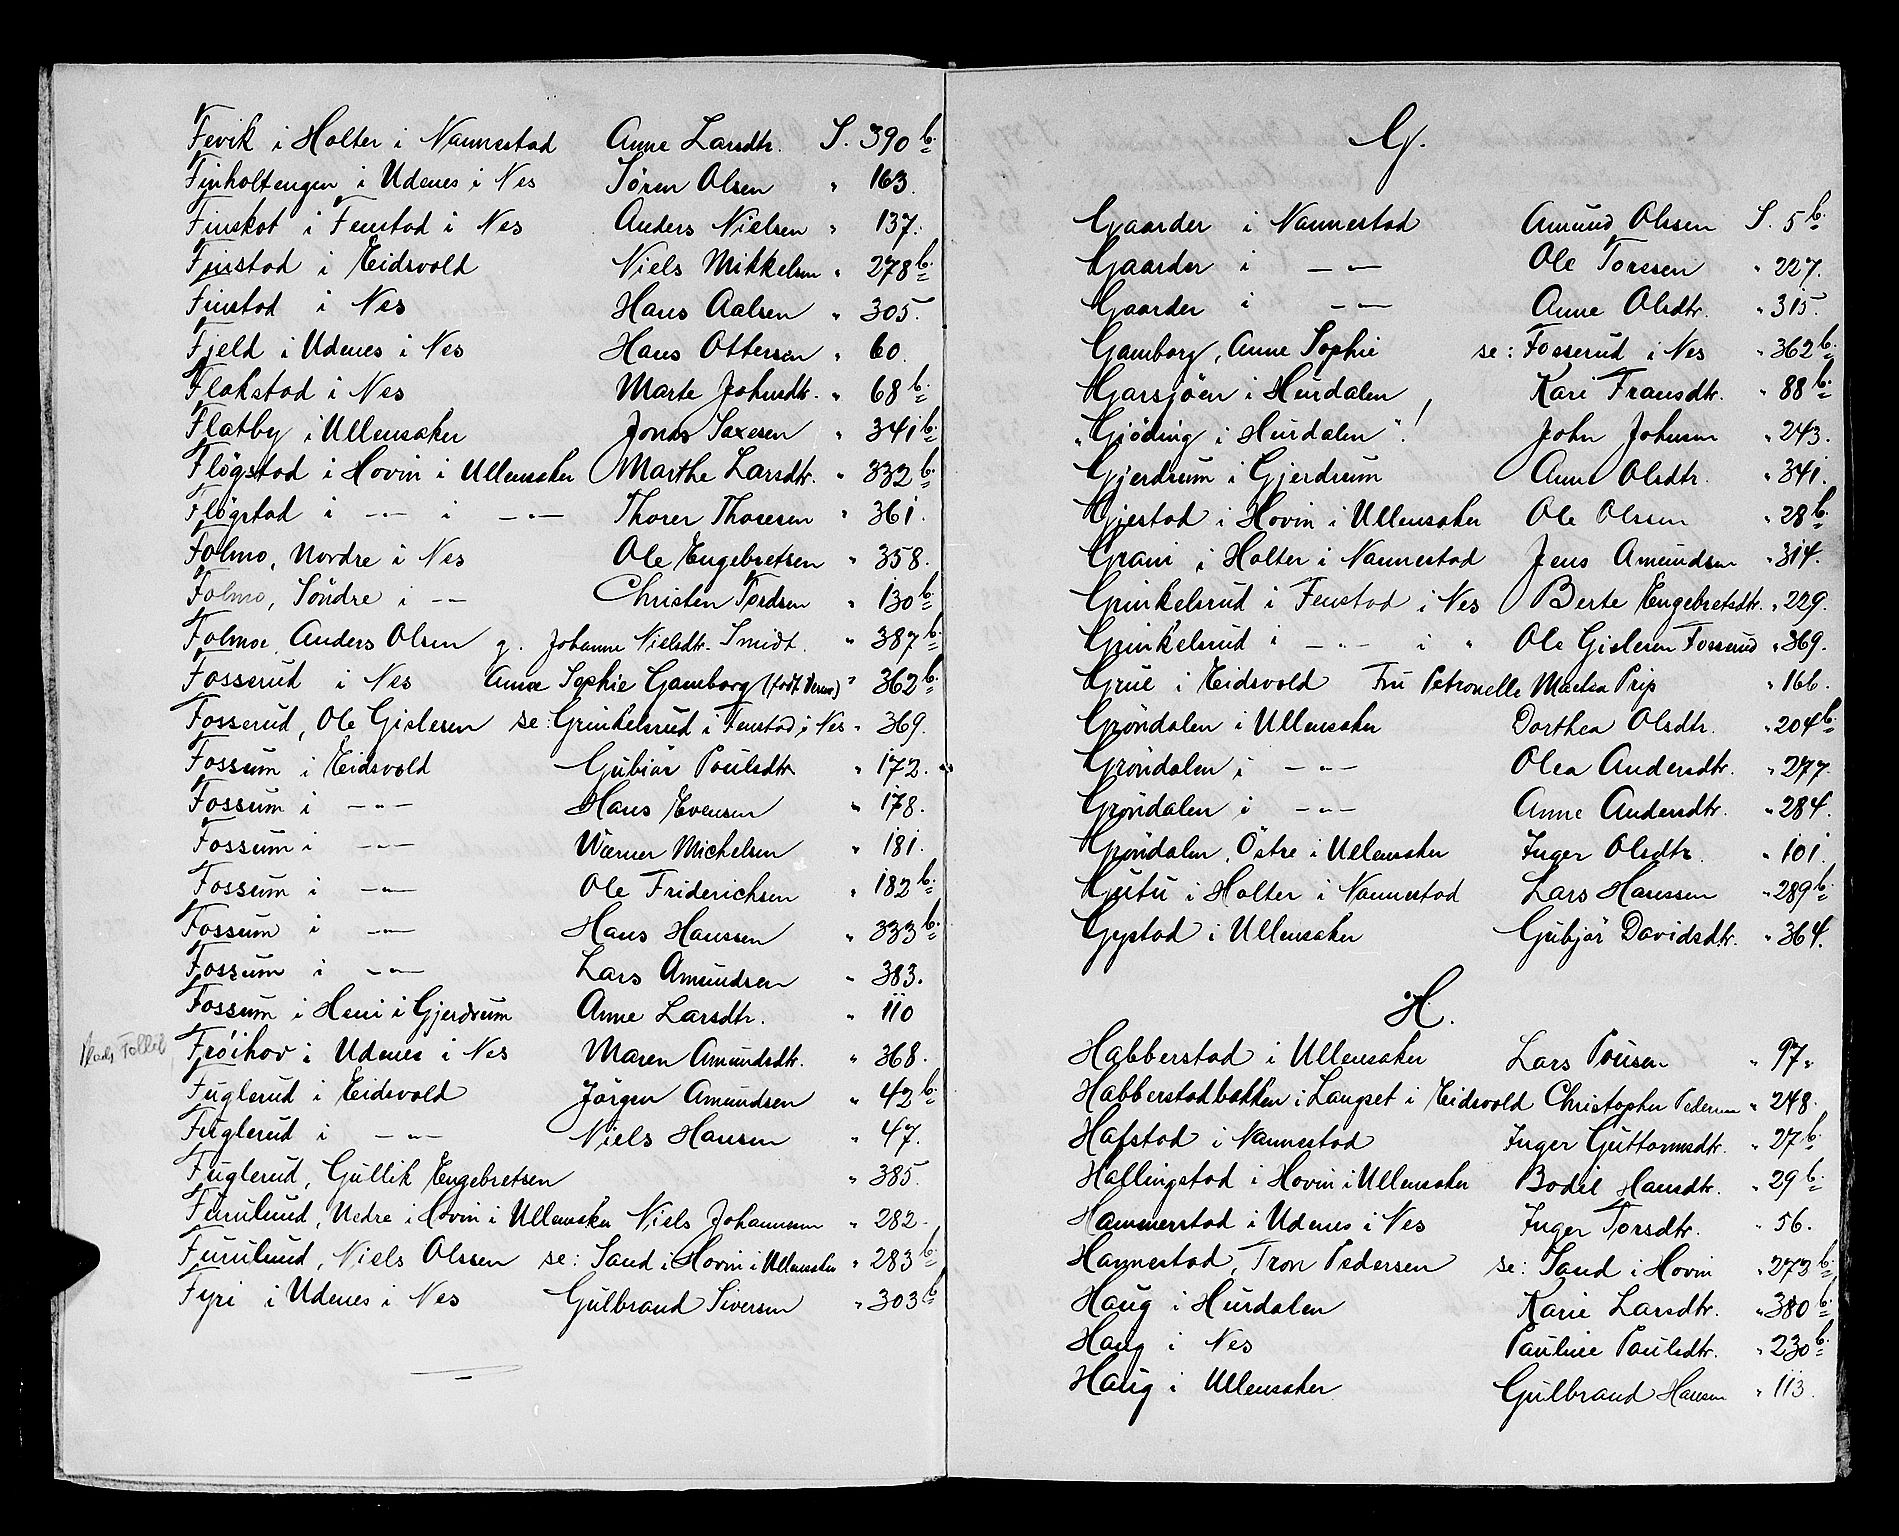 Fevik i Holter i Nannestad Anne Larsdtr. S. 390 b.
Finholtengen i Udenes i Nes Sören Olsen " 163.
Finskot i Fenstad i Nes Anders Nielsen " 137.
Finstad i Eidsvold Niels Mikkelsen " 278 b.
Finstad i Nes Hans Aalsen " 305.
Fjeld i Udenes i Nes Hans Ottersen " 60.
Flakstad i Nes Marte Johnsdtr. " 68 b.
Flatby i Ullensaker Jonas Saxesen " 341 b.
Flögstad i Hovin i Ullensaker Marthe Larsdtr. " 332 b.
Flögstad i -"- i -"- Thorer Thoresen " 361.
Folmo, Nordre i Nes Ole Engebretsen " 358.
Folmo, Söndre i -- Christen Tordsen " 130 b.
Folmoe, Anders Olsen g. Johanne Nielsdtr. Smidt. " 387 b.
Fosserud i Nes Anne Sophie Gamborg (født ) " 362 b.
Fosserud, Ole Gislesen se: Grinkelsrud i Fenstad i Nes " 369.
Fossum i Eidsvold Gubiör Poulsdtr " 172.
Fossum i -"- Hans Evensen " 178.
Fossum i -"- Wærner Michelsen " 181.
Fossum i -"- Ole Friderichsen " 182 b.
Fossum i -"- Hans Hanssen " 333 b.
Fossum i -"- Lars Amundsen " 383.
Fossum i Heni i Gjerdrum Anne Larsdtr. " 110
Frøihov i Udenes i Nes Maren Amundsdtr. " 368.
Fuglerud i Eidsvold Jörgen Amundsen " 42 b.
Fuglerud i -"- Niels Hansen " 47.
Fuglerud, Gullik Engebretsen " 385.
Furulund, Nedre i Hovin i Ullensaker Niels Johannesen " 282.
Furulund, Niels Olssen se: Sand i Hovin i Ullensaker " 283 b.
Fyri i Udenes i Nes Gulbrand Siversen " 303 b.
G.
Gaarder i Nannestad Amund Olssen S. 5 b.
Gaarder i -"- Ole Toresen " 227.
Gaarder i -"- Anne Olsdtr. " 315.
Gamborg, Anne Sophie se: Fosserud i Nes " 362 b.
Garsjöen i Hurdalen Kari Fransdtr. " 88 b.
"Gjöding i Hurdalen"! John Johnsen " 243.
Gjerdrum i Gjerdrum Anne Olsdtr. " 341.
Gjestad i Hovin i Ullensaker Ole Olssen " 28 b.
Grani i Holter i Nannestad Jens Amundsen " 314.
Grinkelsrud i Fenstad i Nes Berte Engebretsdtr. " 229.
Grinkelsrud i -"- i " Ole Gislesen Fosserud " 369.
Grue i Eidsvold Fru Petronelle Maelsa Prip " 166.
Gröndalen i Ullensaker Dorthea Olsdtr. " 204 b.
Gröndalen i -"- Olea Andersdtr. " 277.
Gröndalen i -"- Anne Andersdtr. " 284.
Gröndalen, Östre i Ullensaker Inger Olsdtr. " 101.
Gutu i Holter i Nannestad Lars Hanssen " 289 b.
Gystad i Ullensaker Gubjör Davidsdtr. " 364.
H.
Habberstad i Ullensaker Lars Pousen " 97.
Habberstadbakken i Langset i Eidsvold Christopher Pedersen " 248.
Hafstad i Nannestad Inger Guttormsdtr. " 27 b.
Hallingstad i Hovin i Ullensaker Bodil Hansdtr. " 29 b.
Hammerstad i Udenes i Nes Inger Torsdtr. " 56.
Hannestad, Tron Pedersen se: Sand i Hovin " 273 b.
Haug i Hurdalen Karie Larsdtr. " 380 b.
Haug i Nes Pauline Paulsdtr. " 230 b.
Haug i Ullensaker Gulbrand Hansen " 113.